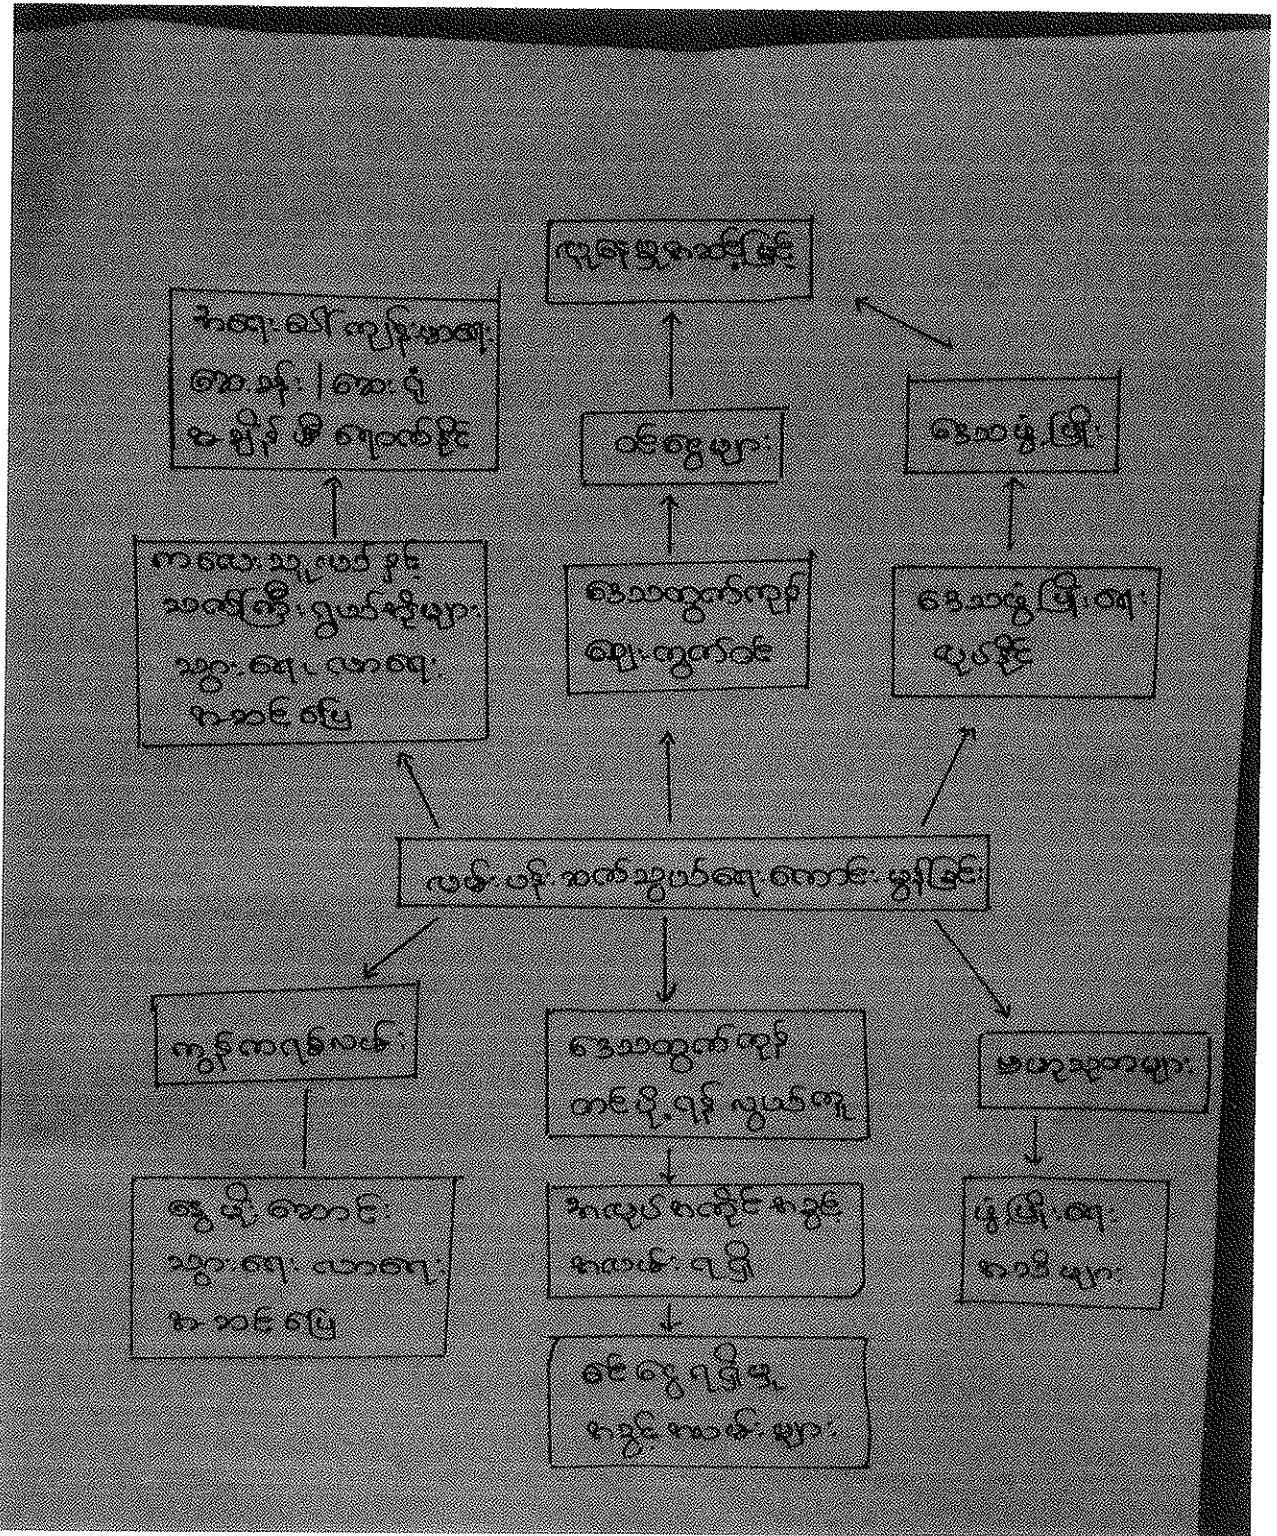 လူနေမှုအဆင့်မြင့်
အရေးပေါ်ကျန်းမာရေး
ဆေးခန်း / ဆေးရုံ
အချိန်မီ ရောက်နိုင်
ဝင်ငွေများ
ဒေသဖွံ့ဖြိုး
ကလေးသူငယ်နှင့်
သက်ကြီးရွယ်အိုများ
သွားရေးလာရေး
အဆင်ပြေ
ဒေသထွက်ကုန်
ဈေးကွက်ဝင်
ဒေသဖွံ့ဖြိုးရေး
လုပ်နိုင်
လမ်းပန်းဆက်သွယ်ရေးကောင်းမွန်ခြင်း
ကွန်ကရစ်လမ်း
ဒေသထွက်ကုန်
တင်ပို့ရန် လွယ်ကူ
ဗဟုသုတများ
နွေ မိုး ဆောင်း
သွားရေးလာရေး
အဆင်ပြေ
အလုပ်အကိုင်အခွင့်
အလမ်းရရှိ
ဖွံ့ဖြိုးရေး
ဝင်ငွေရရှိမှု
အခွင့်အလမ်းများ